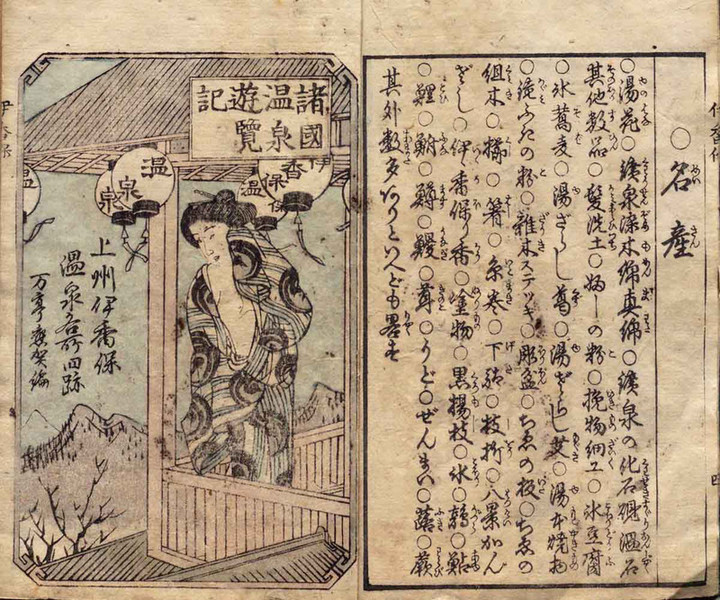 伊香保
○名産
○湯花○鑛泉染木綿真綿○鑛泉の化石硯温石
其他数品○髪洗土○の粉○挽物細工○氷豆腐
○氷蕎麦○湯ざらし葛○湯ざらし艾○湯本焼物
の粉○雑木ステッキ○彫盆○ちゑの板○ちゑの
組木○櫛○箸○糸巻○下駄○枝折○八景かん
ざし○伊香保り香○塗物○黒楊枝○氷○鮎
○鯉○鮒○鱒○鰻○茸○うど○ぜんまい○蕗○蕨
其外数多ありといへども畧す
四
諸國
温泉
遊覧
記
伊香保
温
温泉
泉
温
上州伊香保
温泉名所旧跡
万亭應賀編
伊香保